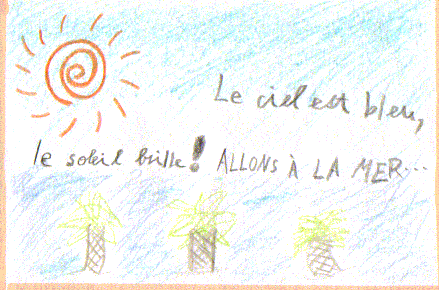 Le ciel est bleu,
le soleil brille! ALLONS À LA MER...